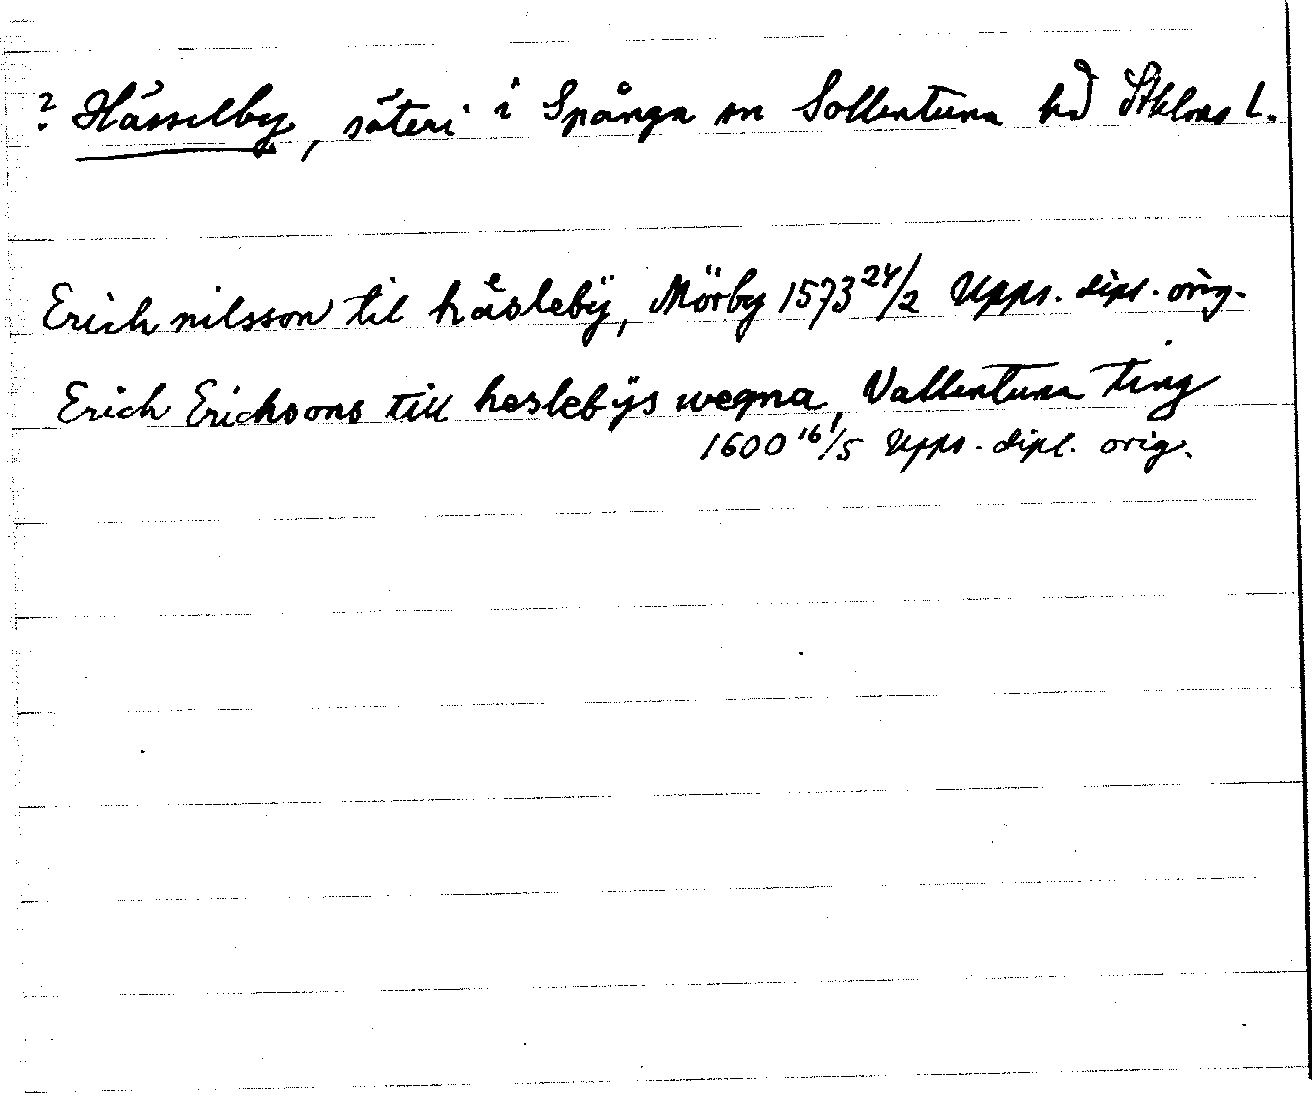 ? Hässelby, säteri i Spånga sn Sollentuna hd Sthlms l.
Erich nilsson til håslebÿ, Mörby 1573 24/2 Upps. dipl. orig.
Erich Ericksons till heslebÿs wegna, Vallentuna ting
1600 16/5 Upps. dipl. orig.